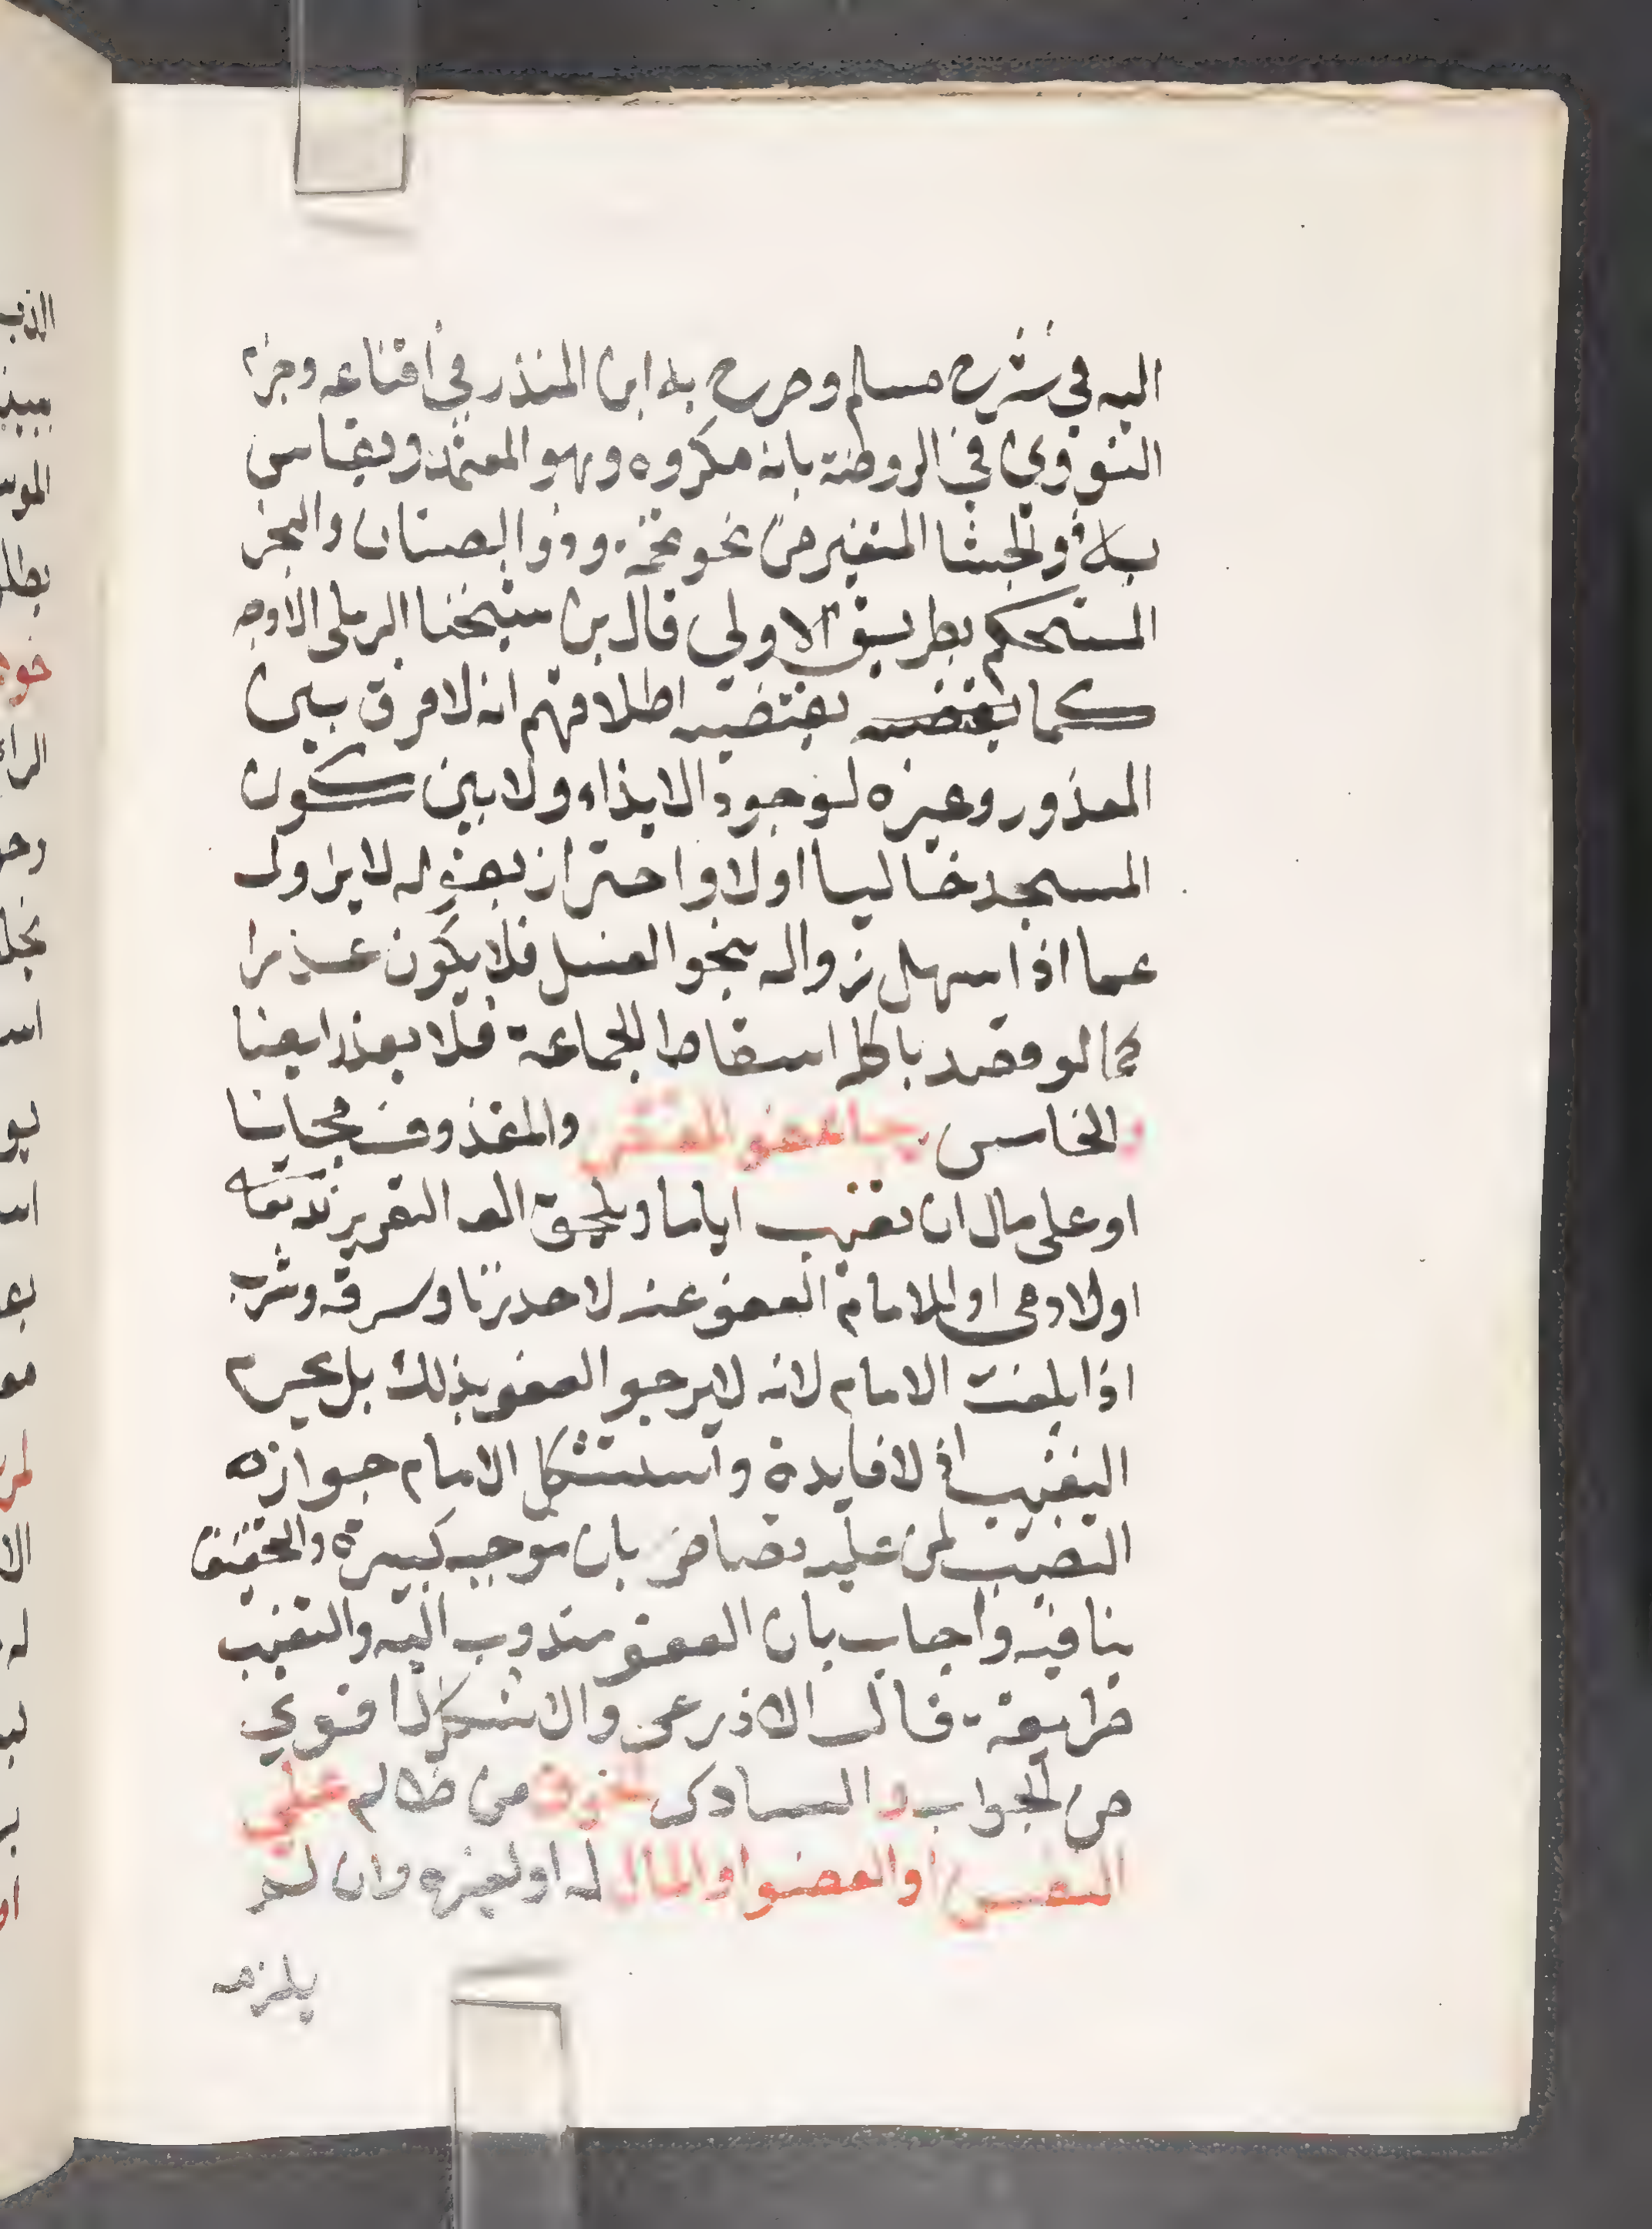 اليه في شرح مسلم وصرح به ابن المنذر في اقناعه وجزم
النووي في الروضة بانه مكروه وهو المعتمد ويقاس
به ذو الجشا المتغير من نحو تخمة وذو الصنان والبخر
المستحكم بطريق الاولي قال بن شيخنا الرملى الاوجه
كما يقتضيه اطلاقهم انه لا فرق بين
المعذور وغيره لوجود الايذاء ولا بين كون
المسجد خاليا اولا واحترز بقوله لا يزول
عما اذا سهل زواله بنحو الغسل فلا يكون عذرا
كما لو قصد باكله اسقاط الجماعة فلا يعذر ايضا
والخامس رجا عفو المقتص والمقذوف مجانا
او على مال ان تغيب اياما ويلحق الحد التعزير لله تعالى
او لادمى او للامام العفو عنه لاحد زنا وسرقه وشرب
اذا بلغت الامام لانه لا يرجو العفو بذلك بل يحرم
التغيب اذ لا فايدة واستشكل الامام جوازه
التغيب لمن عليه قصاص بان موجبه كبيرة والتخفيف
ينافيه واجاب بان العفو مندوب اليه والتغيب
طريقه قال الاذرعى والاشكال قوي
من الجواب والسادس الخوف من ظالم علي
النفس او العضو او المال له او لغيره وان لم
يلزمه